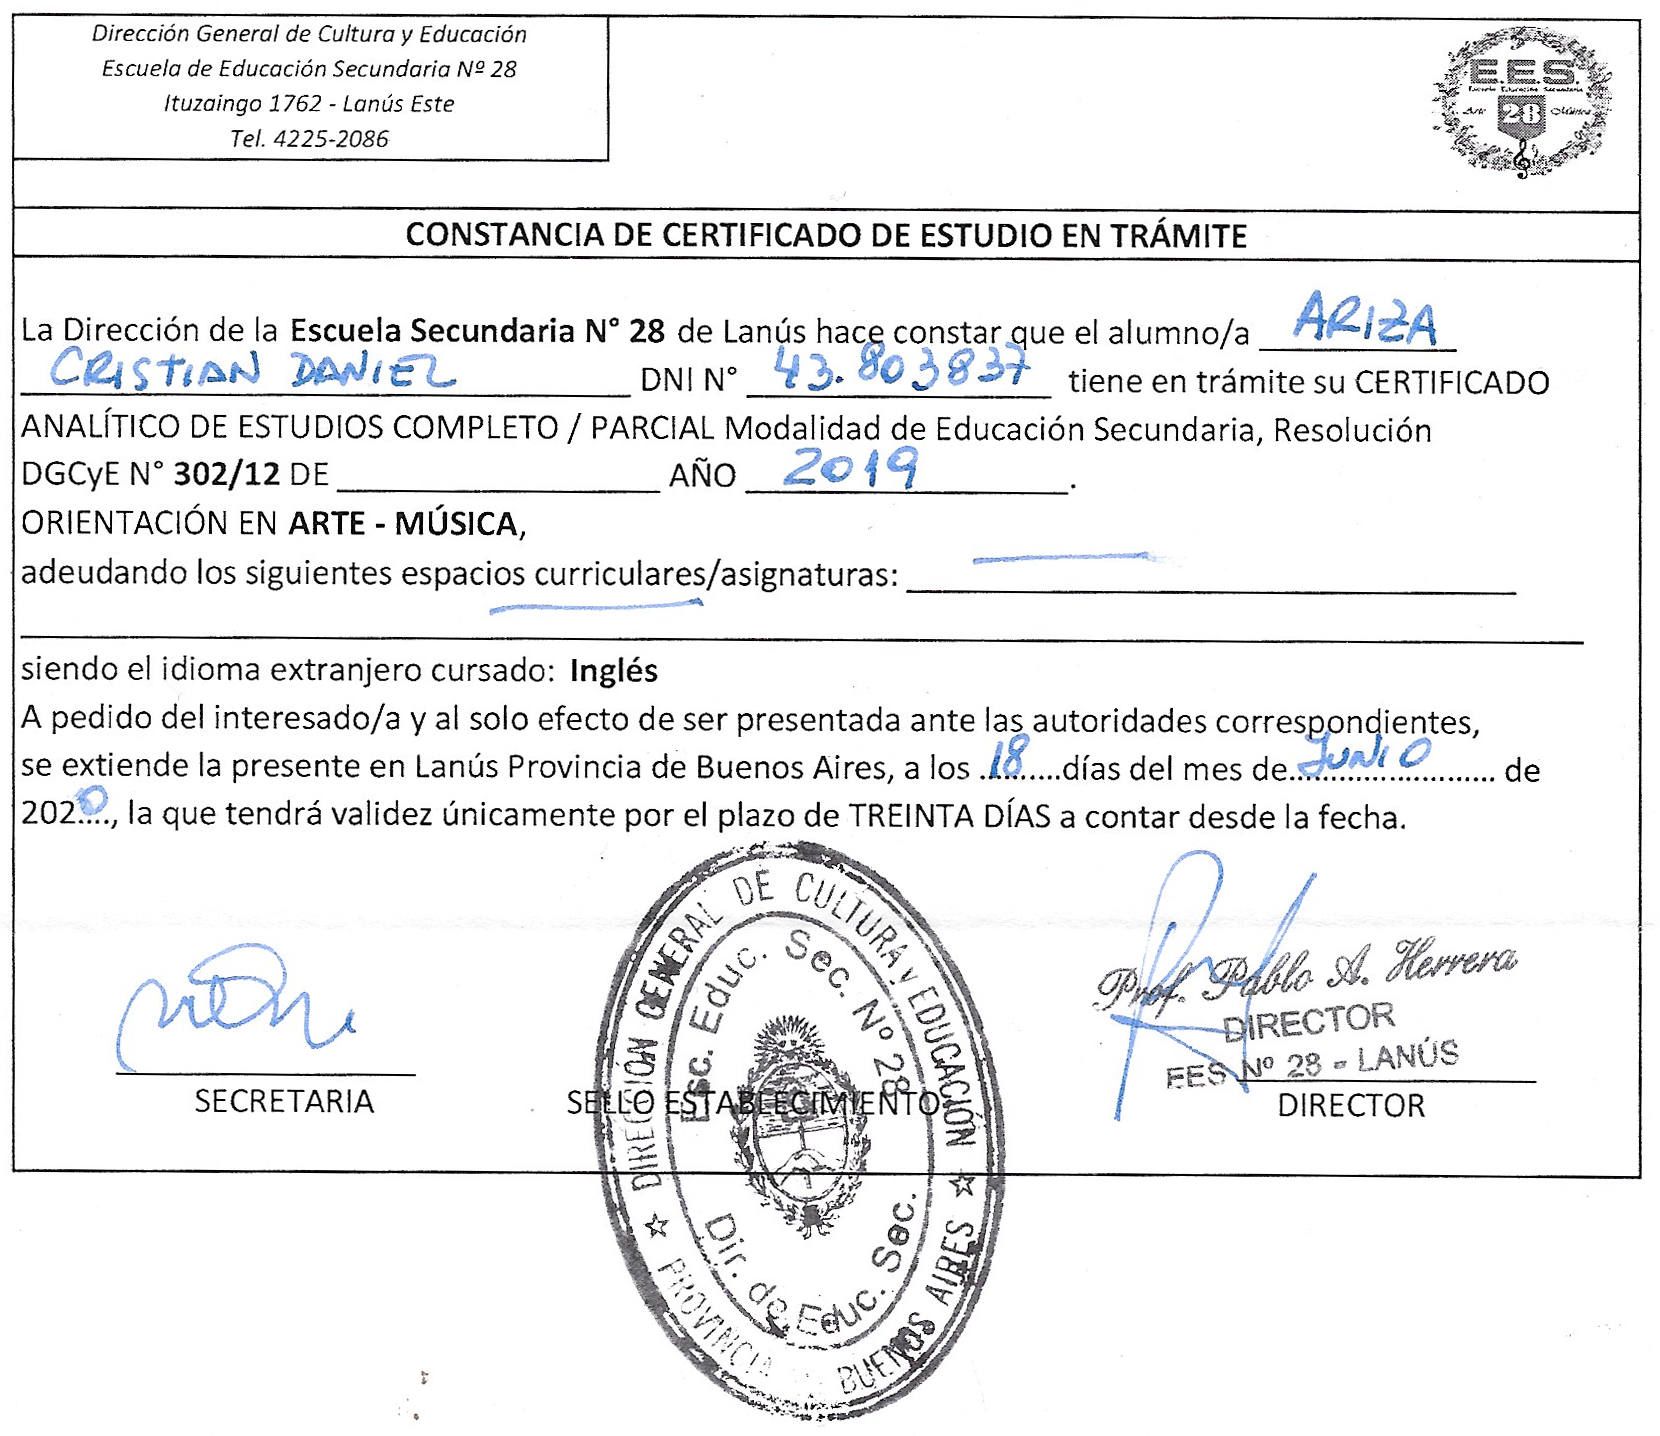 Dirección General de Cultura y Educación
Escuela de Educación Secundaria Nº 28
Ituzaingo 1762 - Lanús Este
Tel. 4225-2086
E.E.S.
Escuela Educación Secundaria
Arte 28 Música
CONSTANCIA DE CERTIFICADO DE ESTUDIO EN TRÁMITE
La Dirección de la Escuela Secundaria N° 28 de Lanús hace constar que el alumno/a ARIZA
CRISTIAN DANIEL DNI N° 43.803837 tiene en trámite su CERTIFICADO
ANALÍTICO DE ESTUDIOS COMPLETO / PARCIAL Modalidad de Educación Secundaria, Resolución
DGCyE N° 302/12 DE ____ AÑO 2019.
ORIENTACIÓN EN ARTE - MÚSICA,
adeudando los siguientes espacios curriculares/asignaturas:
siendo el idioma extranjero cursado: Inglés
A pedido del interesado/a y al solo efecto de ser presentada ante las autoridades correspondientes,
se extiende la presente en Lanús Provincia de Buenos Aires, a los .18......días del mes de..JUNIO........ de
2020...., la que tendrá validez únicamente por el plazo de TREINTA DÍAS a contar desde la fecha.
DIRECCIÓN GENERAL DE CULTURA y EDUCACIÓN
Esc. Educ. Sec. Nº 28
Dir. de Educ. Sec.
PROVINCIA DE BUENOS AIRES
Prof. Pablo A. Herrera
DIRECTOR
EES Nº 28 - LANÚS
SECRETARIA SELLO ESTABLECIMIENTO DIRECTOR